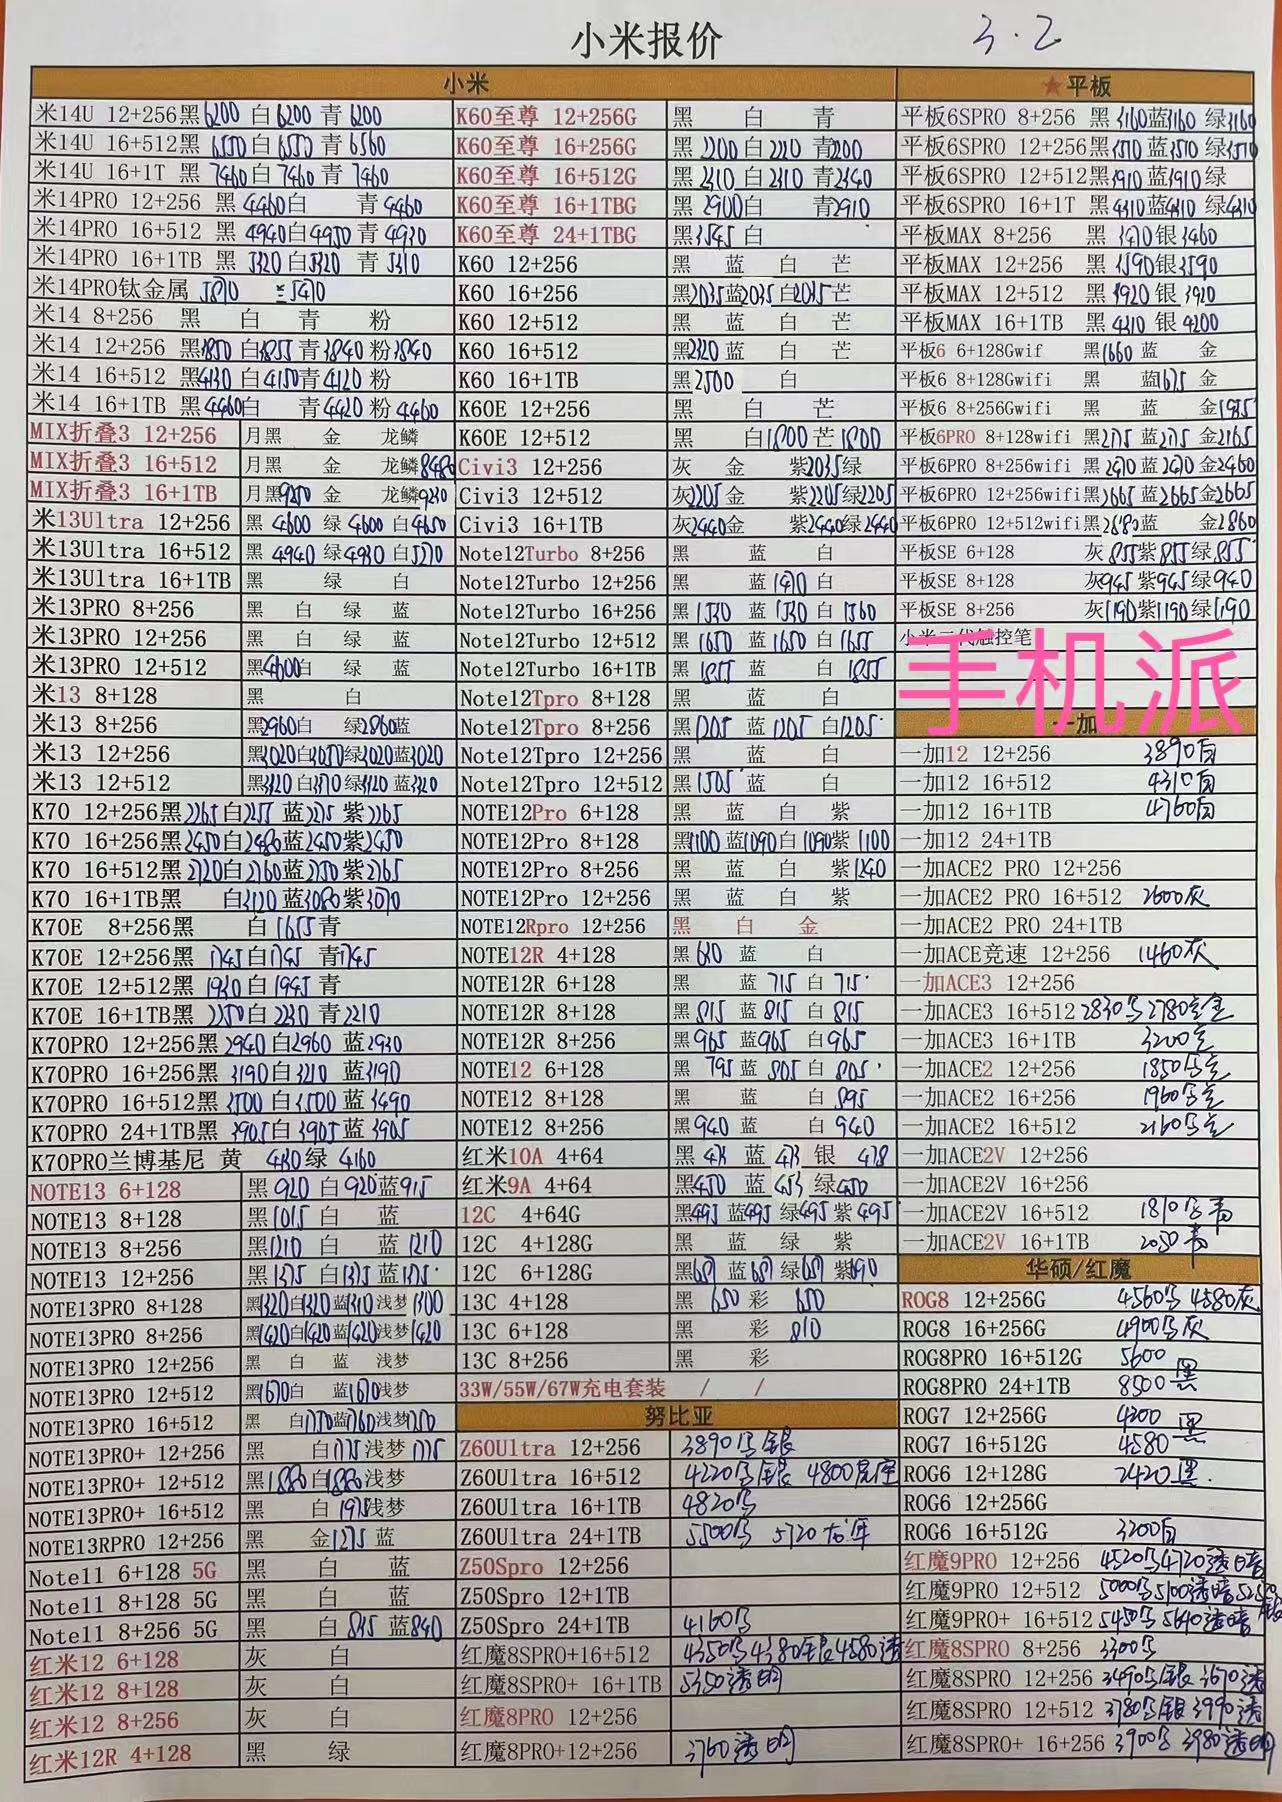 小米报价 3.2
小米
米14U 12+256黑6200 白6200 青6200
米14U 16+512黑6550白6550青6560
米14U 16+1T 黑7460白7460青7460
米14PRO 12+256 黑4460白 青4460
米14PRO 16+512 黑4940白4950青4930
米14PRO 16+1TB 黑5320白5320 青5310
米14PRO钛金属
米14 8+256 黑 白 青 粉
米14 12+256 黑3850白3855青3840粉3840
米14 16+512 黑4130白4150青4120粉
米14 16+1TB 黑4460白 青4420粉4460
MIX折叠3 12+256 月黑 金 龙鳞
MIX折叠3 16+512 月黑 金 龙鳞8480
MIX折叠3 16+1TB 月黑9250 金 龙鳞9230
米13Ultra 12+256 黑4600 绿4600白4650
米13Ultra 16+512 黑4940绿4930白5270
米13Ultra 16+1TB 黑 绿 白
米13PRO 8+256 黑 白 绿 蓝
米13PRO 12+256 黑 白 绿 蓝
米13PRO 12+512 黑4600白 绿 蓝
米13 8+128 黑 白
米13 8+256 黑2960白 绿2860蓝
米13 12+256 黑3020白3050绿3020蓝3020
米13 12+512 黑3320白3370绿3320蓝3320
K70 12+256黑2265白2255蓝2275紫2265
K70 16+256黑2450白2480蓝2450紫2450
K70 16+512黑2720白2760蓝2750紫2765
K70 16+1TB黑 白3120蓝3080紫3070
K70E 8+256黑 白1655青
K70E 12+256黑1745白1745 青1745
K70E 12+512黑1930白1945青
K70E 16+1TB黑2250白2230青2210
K70PRO 12+256黑2940白2960 蓝2930
K70PRO 16+256黑3190白3210 蓝3190
K70PRO 16+512黑3500白3500蓝3490
K70PRO 24+1TB黑3905白3905蓝3905
K70PRO兰博基尼 黄 绿4160
NOTE13 6+128 黑920 白920蓝915
NOTE13 8+128 黑1015 白 蓝
NOTE13 8+256 黑1210 白 蓝1210
NOTE13 12+256 黑1375 白1375蓝1375
NOTE13PRO 8+128 黑1320白1320蓝1310浅梦1300
NOTE13PRO 8+256 黑1420白1420蓝1420浅梦1420
NOTE13PRO 12+256 黑 白 蓝 浅梦
NOTE13PRO 12+512 黑1670白 蓝1670浅梦
NOTE13PRO 16+512 黑 白1770蓝1760浅梦
NOTE13PRO+ 12+256 黑 白1775浅梦1775
NOTE13PRO+ 12+512 黑1880白1880浅梦
NOTE13PRO+ 16+512 黑 白1975浅梦
NOTE13RPRO 12+256 黑 金1275蓝
Note11 6+128 5G 黑 白 蓝
Note11 8+128 5G 黑 白 蓝
Note11 8+256 5G 黑 白845蓝840
红米12 6+128 灰 白
红米12 8+128 灰 白
红米12 8+256 灰 白
红米12R 4+128 黑 绿
K60至尊 12+256G 黑 白 青
K60至尊 16+256G 黑2200白2210青2200
K60至尊 16+512G 黑2310白2310青2340
K60至尊 16+1TBG 黑2900白 青2910
K60至尊 24+1TBG 黑3545白
K60 12+256 黑 蓝 白 芒
K60 16+256 黑2035蓝2035白2035芒
K60 12+512 黑 蓝 白 芒
K60 16+512 黑2320蓝 白 芒
K60 16+1TB 黑2500 白
K60E 12+256 黑 白 芒
K60E 12+512 黑 白1800芒1800
Civi3 12+256 灰 金 紫2035绿
Civi3 12+512 灰2205金 紫2205绿2205
Civi3 16+1TB 灰2440金 紫2440绿2440
Note12Turbo 8+256 黑 蓝 白
Note12Turbo 12+256 黑 蓝1470白
Note12Turbo 16+256 黑1530 蓝1530白1560
Note12Turbo 12+512 黑1650蓝1650白1655
Note12Turbo 16+1TB 黑1855 蓝 白1855
Note12Tpro 8+128 黑 蓝 白
Note12Tpro 8+256 黑1205蓝1205白1205
Note12Tpro 12+256 黑 蓝 白
Note12Tpro 12+512 黑1505蓝 白
NOTE12Pro 6+128 黑 蓝 白 紫
NOTE12Pro 8+128 黑1100蓝1090白1090紫1100
NOTE12Pro 8+256 黑 蓝 白 紫1240
NOTE12Pro 12+256 黑 蓝 白 紫
NOTE12Rpro 12+256 黑 白 金
NOTE12R 4+128 黑630 蓝 白
NOTE12R 6+128 黑 蓝715白715
NOTE12R 8+128 黑815蓝815白815
NOTE12R 8+256 黑965 蓝965白965
NOTE12 6+128 黑795蓝805白805
NOTE12 8+128 黑 蓝 白895
NOTE12 8+256 黑940 蓝 白940
红米10A 4+64 黑 蓝 银478
红米9A 4+64 黑450 蓝453绿450
12C 4+64G 黑495蓝495绿495紫495
12C 4+128G 黑 蓝 绿 紫
12C 6+128G 黑 蓝 绿 紫690
13C 4+128 黑650彩650
13C 6+128 黑 彩810
13C 8+256 黑 彩
33W/55W/67W充电套装 / /
努比亚
Z60Ultra 12+256 3890乌银
Z60Ultra 16+512 4220乌银 4800星空
Z60Ultra 16+1TB 4820乌
Z60Ultra 24+1TB 5500乌 5720
Z50Spro 12+256
Z50Spro 12+1TB
Z50Spro 24+1TB 4160乌
红魔8SPRO+16+512 4350乌4380银4580透
红魔8SPRO+ 16+1TB 5350透明
红魔8PRO 12+256
红魔8PRO+12+256 3760透明
★平板
平板6SPRO 8+256 黑3160蓝3160 绿3160
平板6SPRO 12+256黑3510蓝3510绿3510
平板6SPRO 12+512黑3910蓝3910绿
平板6SPRO 16+1T 黑4310蓝4310绿4310
平板MAX 8+256 黑3470银3460
平板MAX 12+256 黑3590银3590
平板MAX 12+512 黑3920银3920
平板MAX 16+1TB 黑4310银4200
平板6 6+128Gwif 黑1660蓝 金
平板6 8+128Gwifi 黑 蓝1675金
平板6 8+256Gwifi 黑 蓝 金1985
平板6PRO 8+128wifi 黑2175蓝2175金2165
平板6PRO 8+256wifi 黑2470蓝2470金2460
平板6PRO 12+256wifi黑2665蓝2665金2665
平板6PRO 12+512wifi黑2880蓝 金2860
平板SE 6+128 灰855紫855绿855
平板SE 8+128 灰945紫945绿940
平板SE 8+256 灰1190紫1190绿1190
小米二代触控笔
手机派
一加
一加12 12+256 3890白
一加12 16+512 4310白
一加12 16+1TB 4760白
一加12 24+1TB
一加ACE2 PRO 12+256
一加ACE2 PRO 16+512 2600灰
一加ACE2 PRO 24+1TB
一加ACE竞速 12+256 1460灰
一加ACE3 12+256
一加ACE3 16+512 2830乌2780
一加ACE3 16+1TB 3200
一加ACE2 12+256 1850乌
一加ACE2 16+256 1960乌
一加ACE2 16+512 2160乌
一加ACE2V 12+256
一加ACE2V 16+256
一加ACE2V 16+512 1810乌青
一加ACE2V 16+1TB 2050青
华硕/红魔
ROG8 12+256G 4560乌 4580灰
ROG8 16+256G 4900乌灰
ROG8PRO 16+512G 5600
ROG8PRO 24+1TB 8500黑
ROG7 12+256G 4200
ROG7 16+512G 4580黑
ROG6 12+128G 2420黑
ROG6 12+256G
ROG6 16+512G 3200白
红魔9PRO 12+256 4520乌4720透暗
红魔9PRO 12+512 5000乌5100透暗
红魔9PRO+ 16+512 5450乌5640透暗
红魔8SPRO 8+256 3300乌
红魔8SPRO 12+256 3490乌银3670透
红魔8SPRO 12+512 3780乌银3990透
红魔8SPRO+ 16+256 3900乌3980透明